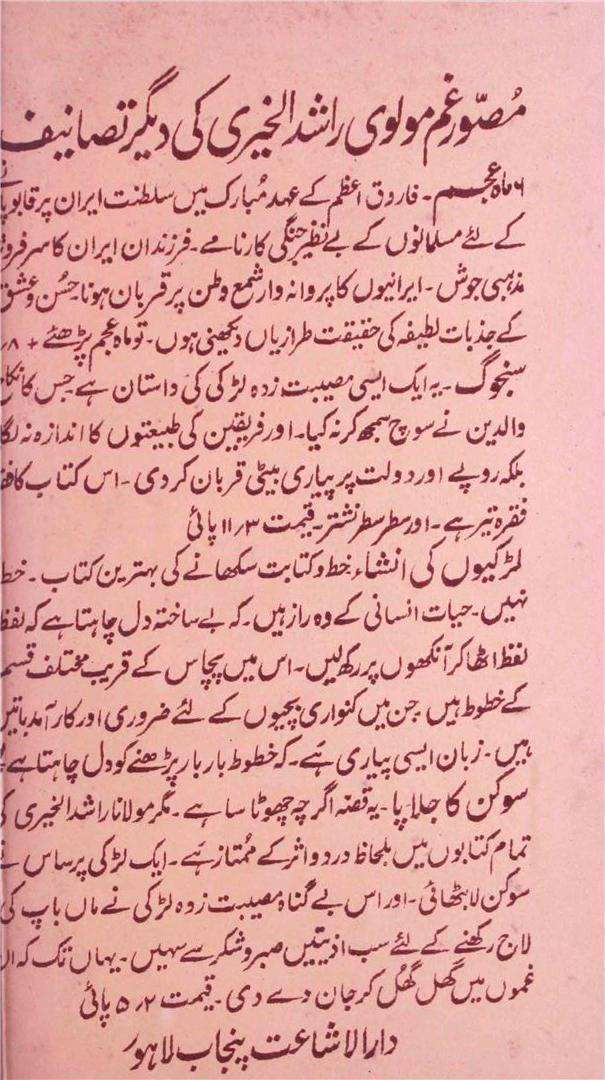 مُصوّرِ غم مولوی راشد الخیری کی دیگر تصانیف
ماہ عجم۔ فاروق اعظم کے عہد مُبارک میں سلطنت ایران پر قابو پانے
کے لئے مسلمانوں کے بے نظیر جنگی کارنامے۔ فرزندان ایران کا سرفرو
مذہبی جوش۔ ایرانیوں کا پروانہ وار شمع وطن پر قربان ہونا۔ حُسن و عشق
کے جذبات لطیفہ کی حقیقت طرازیاں دیکھنی ہوں۔ تو ماہ عجم پڑھئے + ۸؍
سنجوگ۔ یہ ایک ایسی مصیبت زدہ لڑکی کی داستان ہے۔ جس کا نکاح
والدین نے سوچ سمجھ کر نہ کیا۔ اور فریقین کی طبیعتوں کا اندازہ نہ لگا
بلکہ روپے اور دولت پر پیاری بیٹی قربان کر دی۔ اس کتاب کا فقرہ
فقرہ تیر ہے۔ اور سطر سطر نشتر۔ قیمت ۳؍ ۱۱ پائی
لڑکیوں کی انشاء۔ خط و کتابت سکھانے کی بہترین کتاب۔ خط
نہیں۔ حیات انسانی کے وہ راز ہیں۔ کہ بے ساختہ دل چاہتا ہے کہ لفظ
لفظ اٹھا کر آنکھوں پر رکھ لیں۔ اس میں پچاس کے قریب مختلف قسم
کے خطوط ہیں۔ جن میں کنواری بچیوں کے لئے ضروری اور کارآمد باتیں
ہیں۔ زبان ایسی پیاری ہے۔ کہ خطوط بار بار پڑھنے کو دل چاہتا ہے
سوکن کا جلاپا۔ یہ قصہ اگرچہ چھوٹا سا ہے۔ مگر مولانا راشد الخیری کی
تمام کتابوں میں بلحاظ درد و اثر کے مُمتاز ہے۔ ایک لڑکی پر ساس نے
سوکن لا بٹھائی۔ اور اس بے گناہ مصیبت زدہ لڑکی نے ماں باپ کی
لاج رکھنے کے لئے سب اذیتیں صبر و شکر سے سہیں۔ یہاں تک کہ ان
غموں میں گھل گھُل کر جان دے دی۔ قیمت ۲؍ ۵ پائی
دارالاشاعت پنجاب لاہور